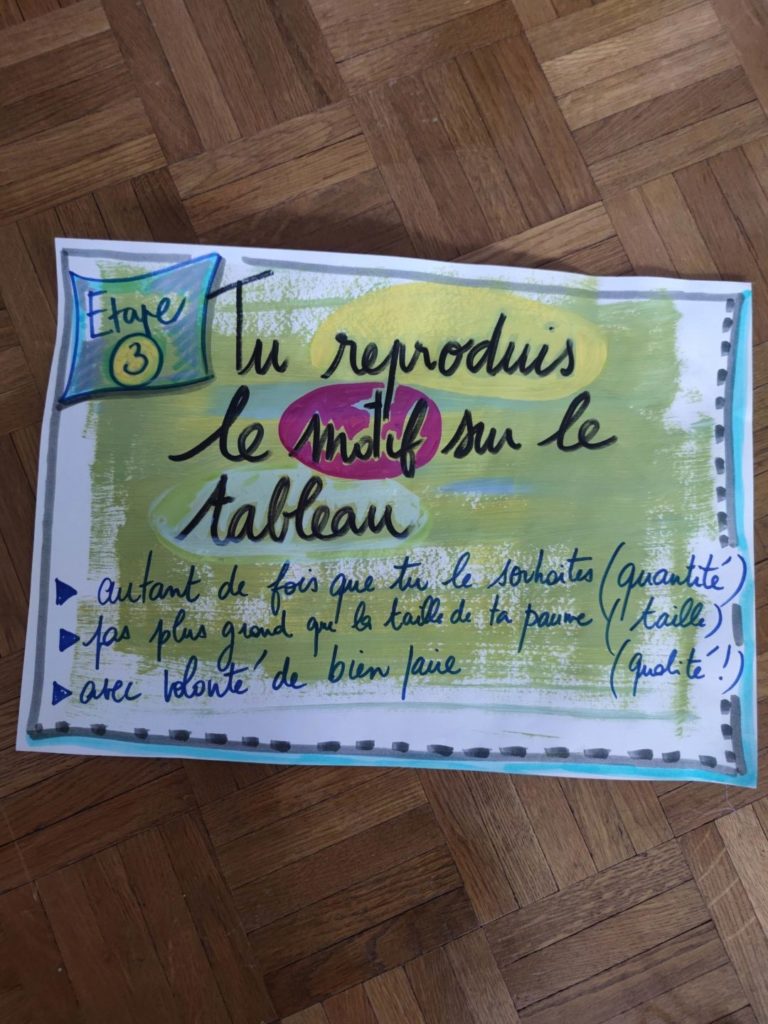 Etape
3
Tu reproduis
le motif sur le
tableau
▶ autant de fois que tu le souhaites (quantité)
▶ pas plus grand que la taille de ta paume (taille)
▶ avec volonté de bien faire (qualité!)